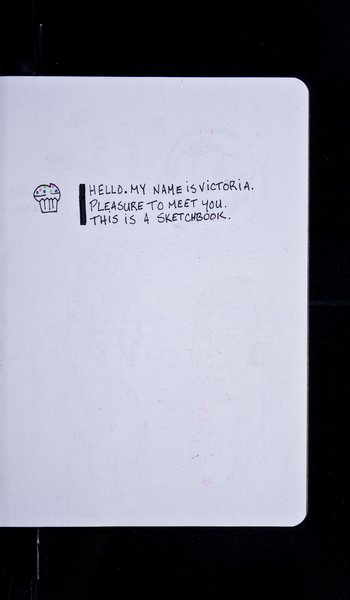 HELLO. MY NAME iS ViCTORiA.
PLEASURE TO MEET YOU.
THIS IS A SKETCHBOOK.